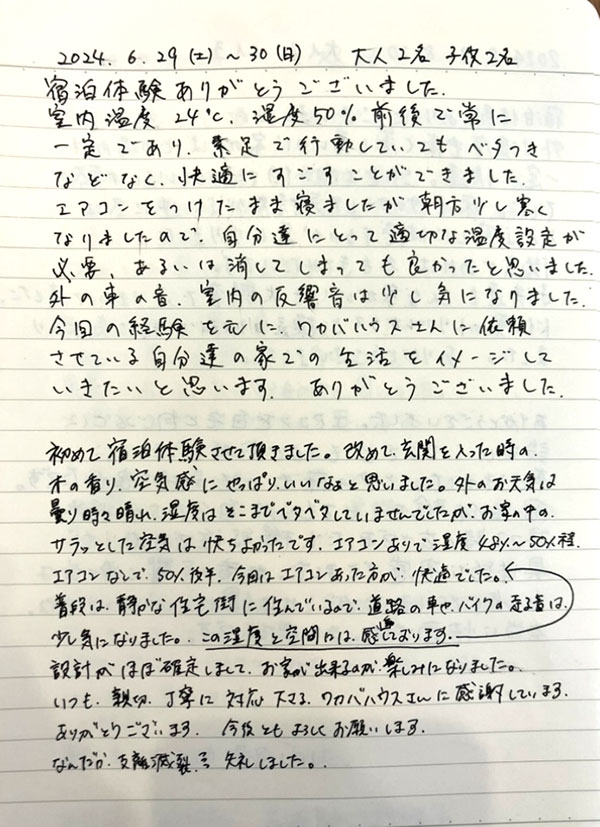 2024. 6. 29 (土) ~ 30 (日) 大人2名 子供2名
宿泊体験ありがとうございました.
室内温度 24℃. 湿度50% 前後で常に
一定であり. 素足で行動していてもベタつき
などなく. 快適にすごすことができました.
エアコンをつけたまま寝ましたが朝方少し寒く
なりましたので. 自分達にとって適切な温度設定が
必要. あるいは消してしまっても良かったと思いました.
外の車の音. 室内の反響音は少し気になりました.
今回の経験を元に. ワカバハウスさんに依頼
させている自分達の家での生活をイメージして
いきたいと思います. ありがとうございました.
初めて宿泊体験させて頂きました。改めて玄関を入った時の.
木の香り. 空気感にやっぱりいいなぁと思いました。外のお天気は
曇り時々晴れ. 湿度はそこまでベタベタしていませんでしたが. お家の中の.
サラッとした空気は快ちよかったです. エアコンありで湿度48%~50%程.
エアコンなしで. 50%後半. 今回はエアコンあった方が. 快適でした。
普段は. 静かな住宅街に住んでいるので. 道路の車や. バイクの走る音は.
少し気になりました。この湿度と空間には. 感じております.
設計がほぼ確定しまして. お家が出来るのが楽しみになりました。
いつも. 親切. 丁寧に対応下さる. ワカバハウスさんに感謝しています.
ありがとうございます. 今後ともよろしくお願いします.
なんだか. 支離滅裂で失礼しました。.